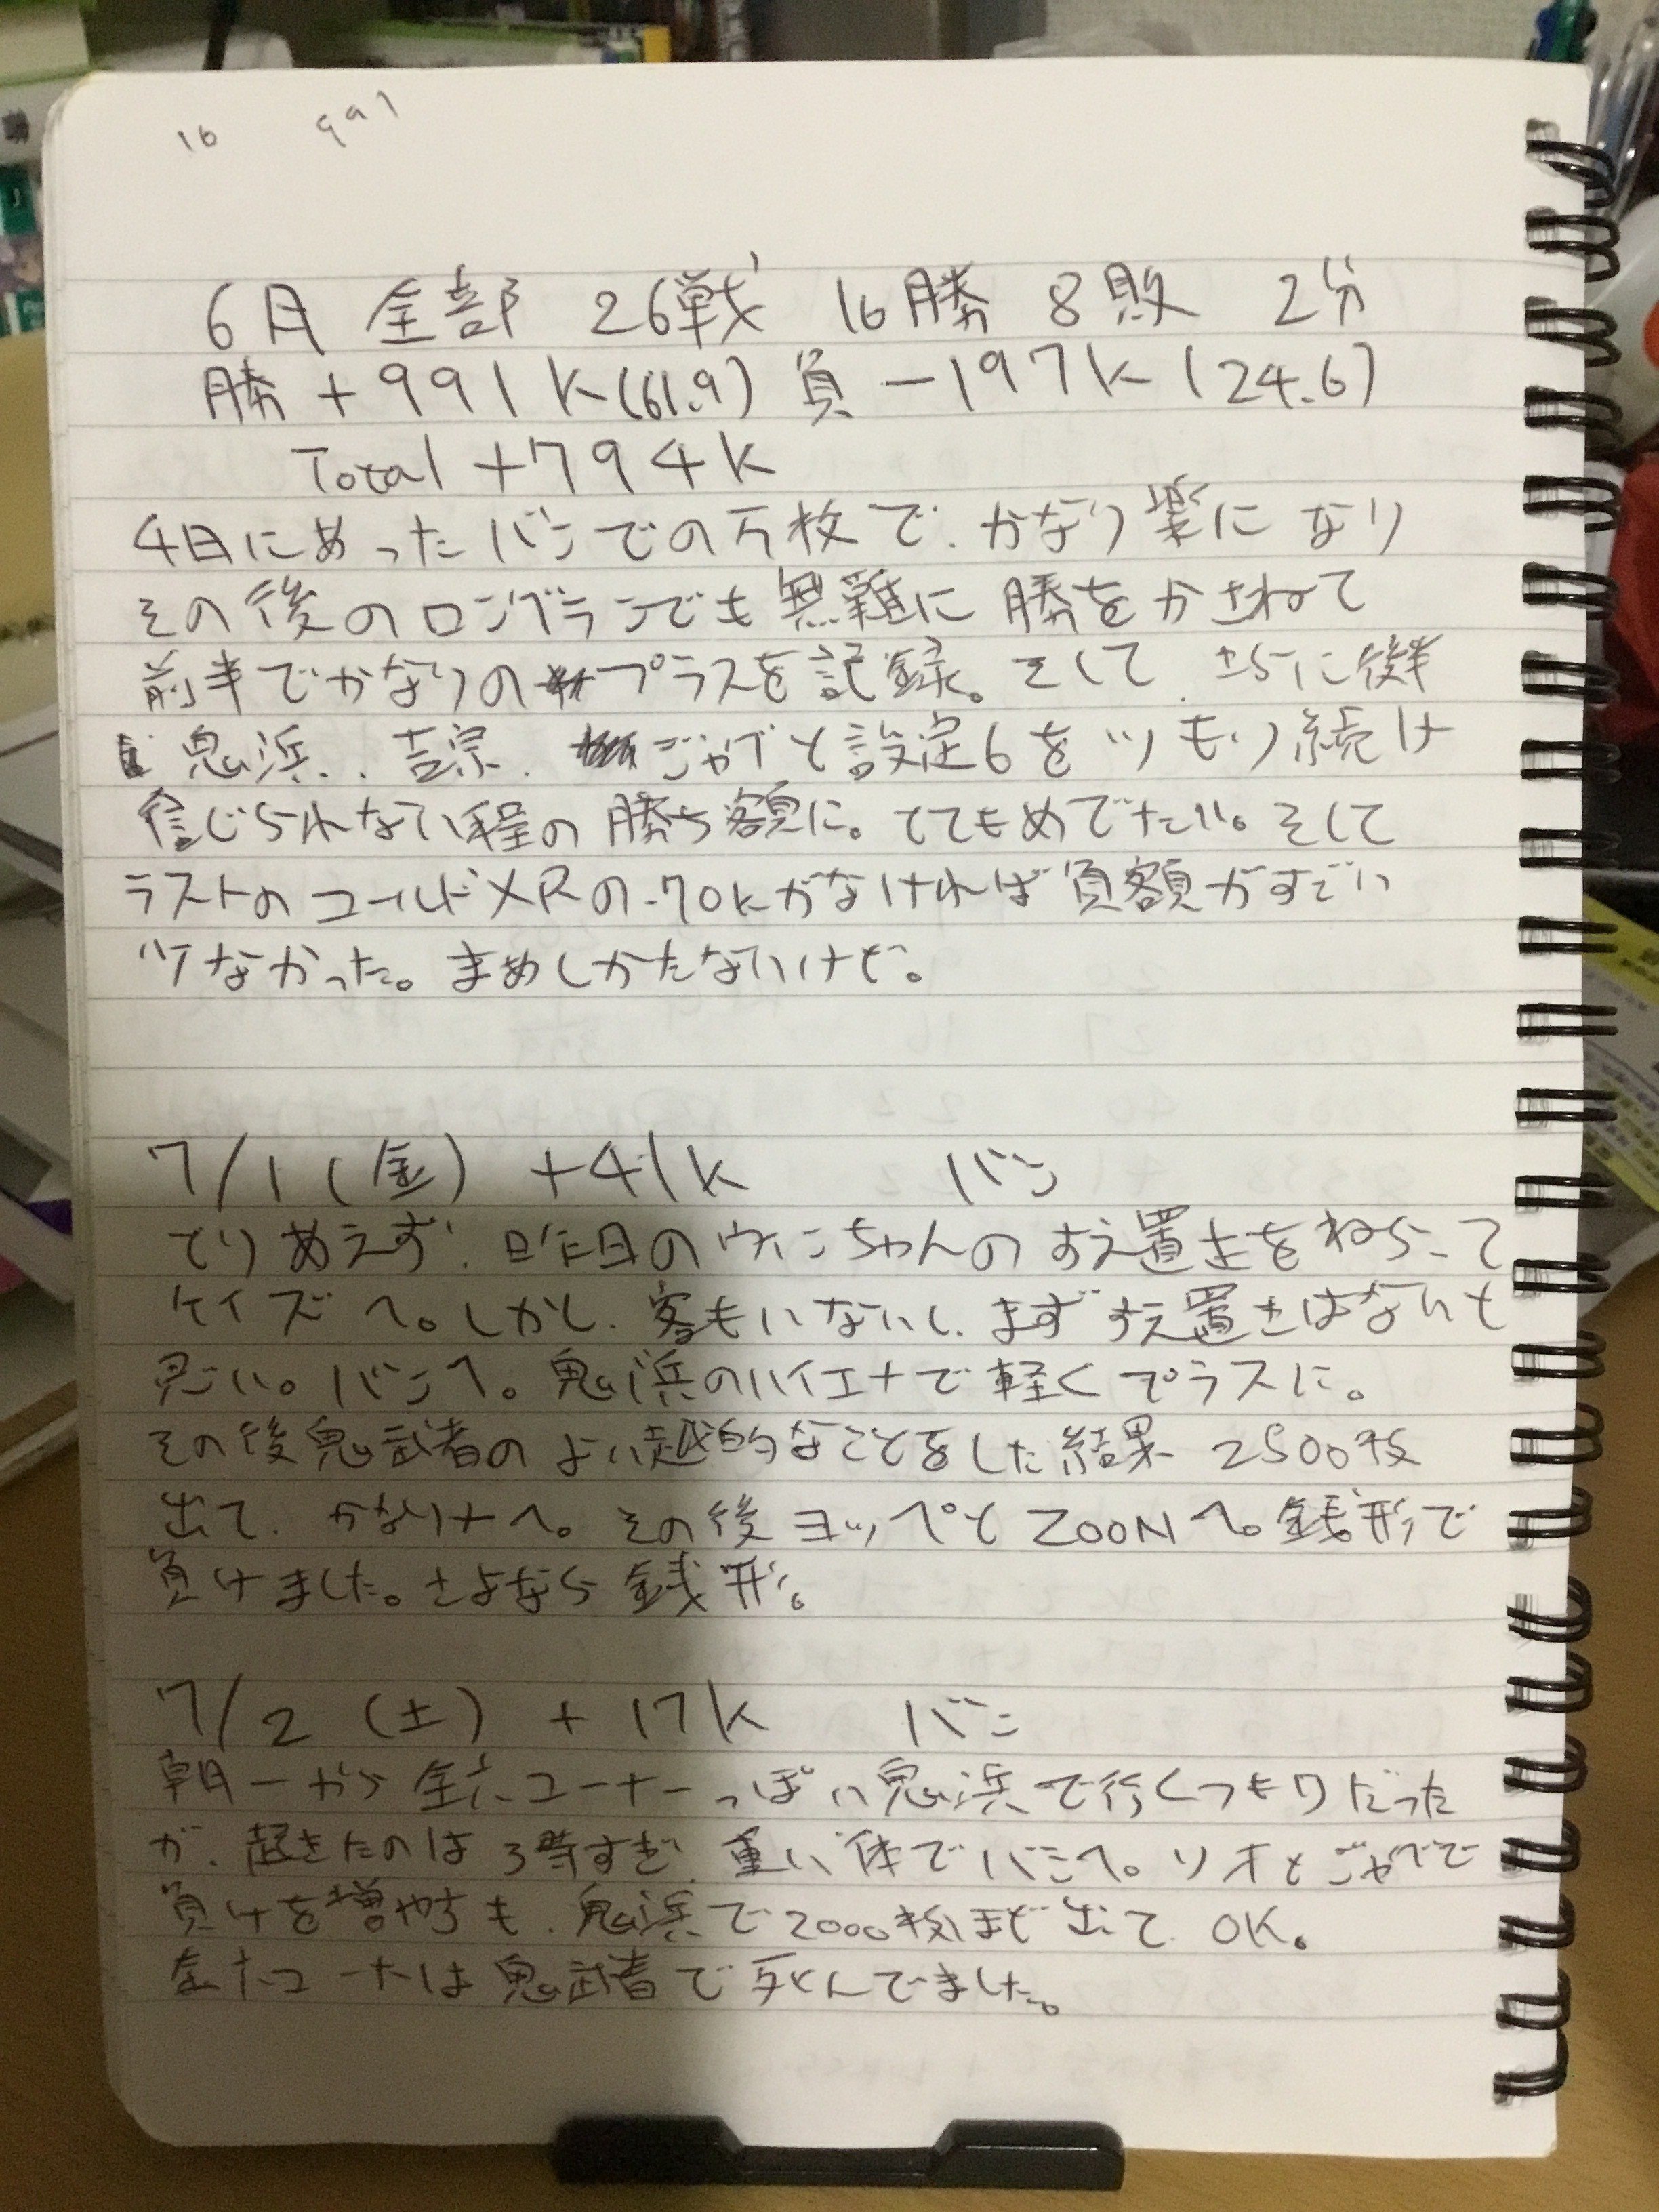 16 991
6月 全部 26戦 16勝 8敗 2分
勝 +991K(61.9) 負 -197K(24.6)
Total +794K
4日にあったバンでの万枚で、かなり楽になり
その後のロングランでも無難に勝をかさねて
前半でかなりのプラスを記録。そして、さらに後半
鬼浜、吉宗、ごゃブと設定6をツモり続け
信じられない程の勝ち額に。とてもめでたい。そして
ラストのゴールドXRの-70Kがなければ負額がすごい
少なかった。まあしかたないけど。
7/1(金) +41K バン
とりあえず、昨日のウィンちゃんのすえ置きをねらって
ケイズへ。しかし、客もいないし、まずすえ置きはないと
思い。バンへ。鬼浜のハイエナで軽くプラスに。
その後鬼武者のよい越的なことをした結果 2500枚
出て、かなり+へ。その後ヨッペとZOONへ。銭形で
負けました。さよなら銭形。
7/2 (土) +17K バン
朝一から全六コーナーっぽい鬼浜で行くつもりだった
が、起きたのは3時すぎ、重い体でバンへ。リオとごゃブで
負けを増やすも、鬼浜で2000枚まで出て、OK。
全六コーナーは鬼武者で死んでました。